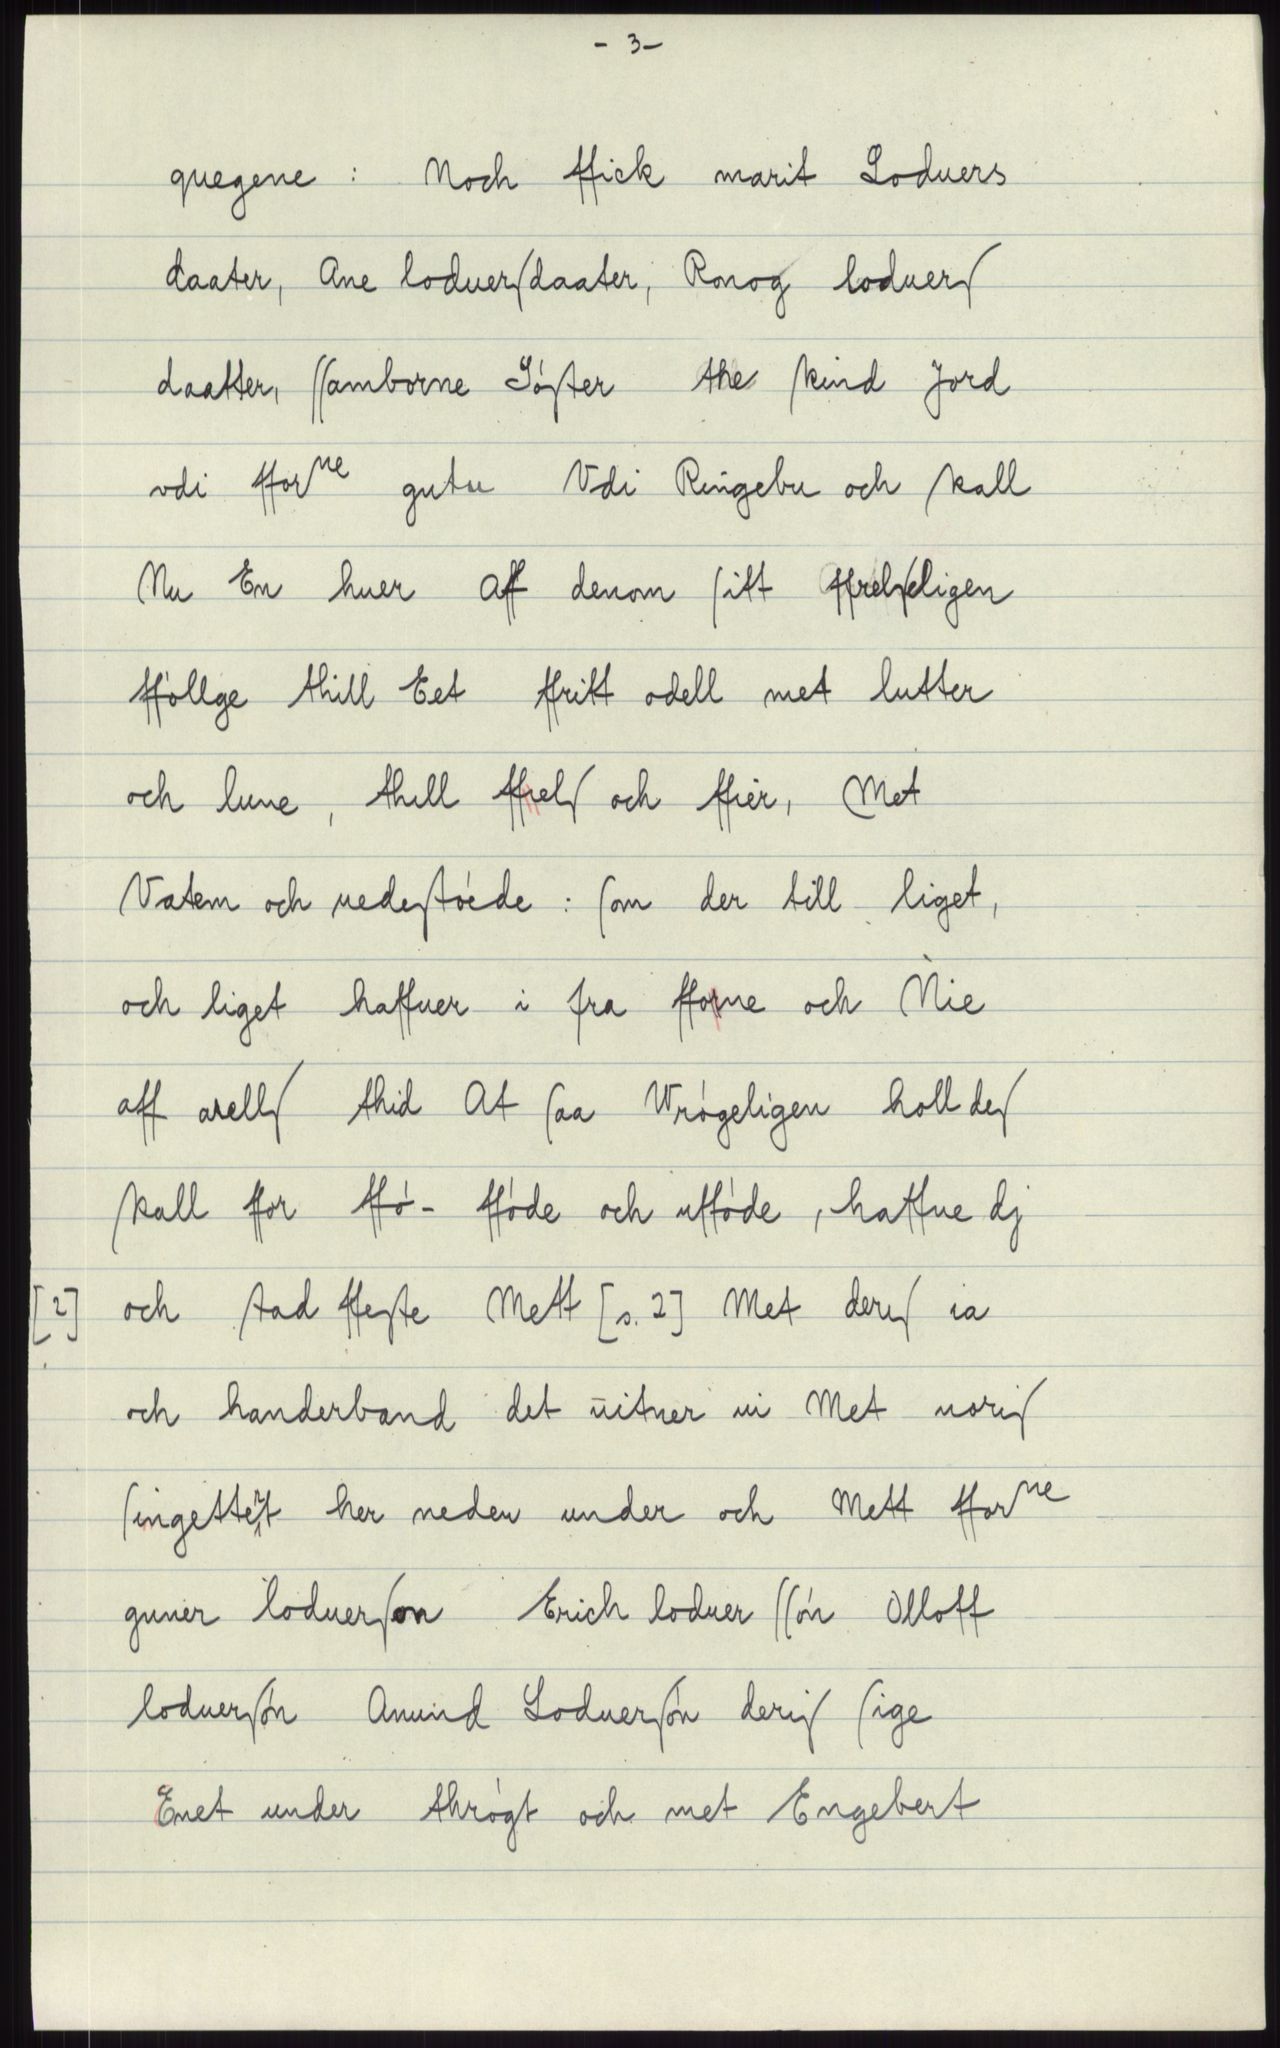 - 3 -
quegene : Noch ffick marit Loduers
daater, Ane loduerſdaater, Ronog loduerſ
daatter, ſſamborne Sóſter the ſkind Jord
vdi ffor^ne gutu Vdi Ringebu och ſkall
Nu En huer Aff denom ſitt ffrelſeligen
ffóllge thill Eet ffritt odell met lutter
och lune, thill ffrelſ och ffrier, Met
Vatem och uedeſtóede : ſom der till liget,
och liget haffuer i fra fforne och Nie
aff arellſ thid At ſaa Vrógeligen holldeſ
ſkall ffor ffó- ffóde och uffóde, haffue dj
[2] och ſtad ffeſte Mett [s. 2] Met derſ ia
och handerband det uitner ui Met noriſ
ſingetter her neden under och Mett ffor^ne
guner loduerſon Erich loduer ſſón Olloff
loduerſón Amund Loduerſón deriſ ſige
Enet under thrógt och met Engebert